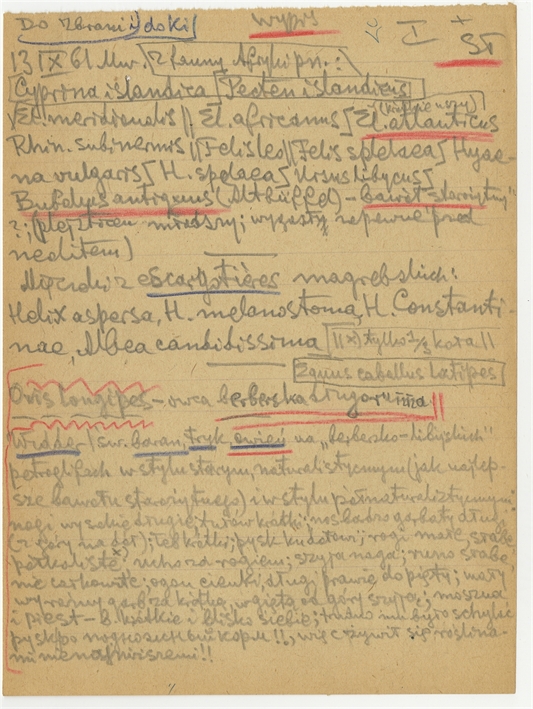 Do zbrani dok. Wypis I + ST
13 IX 61 Mw. z fauny Afryki pn.:
Cyprina islandica Pecten islandicus
El. meridionalis || El. africanus El. atlanticus
Rhin. subinermis || Felis leo || Felis spelaea Hyae-
na vulgaris H. spelaea Ursus libycus
Bubalus antiquus (Altbüffel) – bawół starożytny"
?; (plejstocen młodszy; wygasły zapewne przed
neolitem)
Mięczaki z escargotières magrebskich:
Helix aspersa, H. melanostoma, H. Constanti-
nae, Albea candidissima tylko 1/3 koła ||
Equus caballus
Ovis longipes – owca berberska długonima ||
baran, tryk, owień na „berbersko-libijskich"
petroglifach w stylu starym, naturalistycznym (jak najlep-
sze bawołu starożytnego) i w stylu półnaturalistycznym:
nogi wysokie długie; tułów krótki; nos bardzo garbaty długi
(z góry na dół); łeb krótki; pysk rogi małe, słabe
półkoliste, ucho za rogiem; szyja naga; runo słabe,
nie całkowite; ogon cienki, długi prawie do pięty; mały
wyraźny garb za krótką, wgiętą od góry szyją; moszna
i piest – b. krótkie i blisko siebie; trudno mu było schylać
pysk po подножный корм !!, więc żywił się roślina-
mi nienajniższemi !!